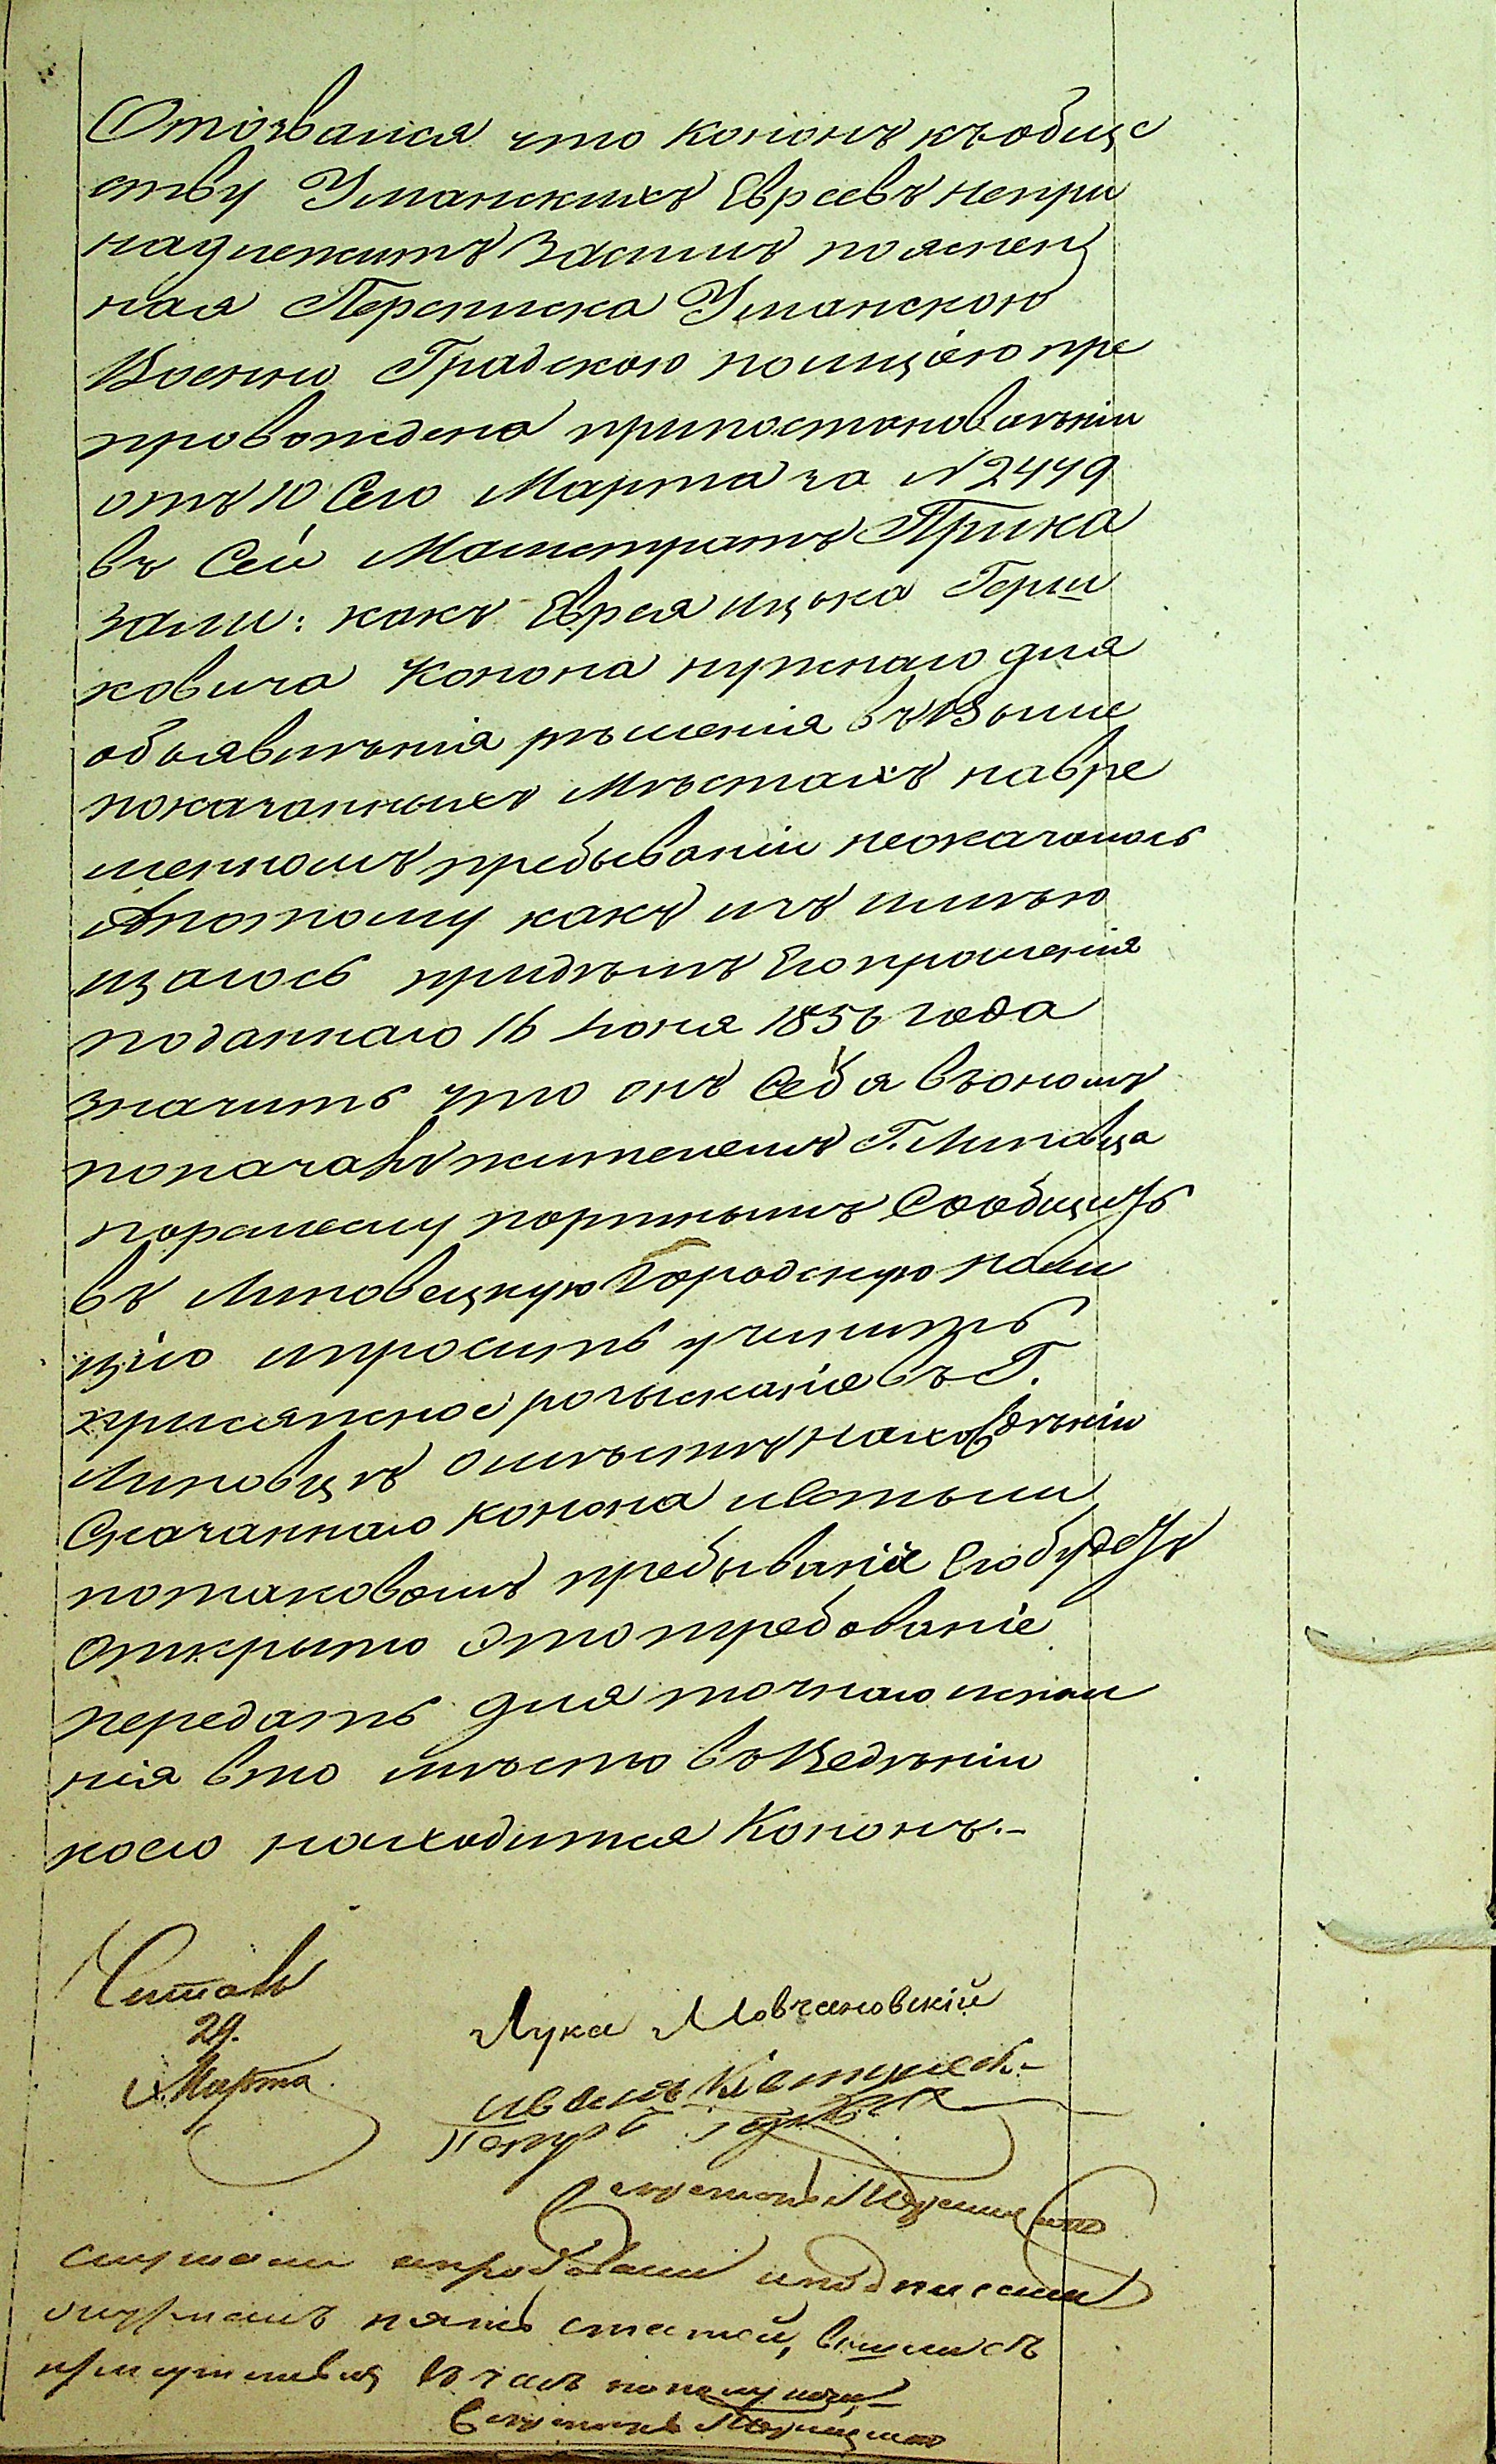 Отозвался что Кононъ къ обще
ству Уманскихъ Евреевъ непри
надлежитъ Засимъ пояснен
ная Переписка Уманскою
Военно Градскою полицiею пре
провождена припостановленiи
отъ 10 Сего Марта за N 2449
въ Сей Магистратъ Прика
зали: какъ Еврея Ицька Герш
ковича Конона нужнаго для
объявленiя рѣшенiя въ Выше
показанныхъ Мѣстахъ навре
менномъ пребыванiи неоказалось
Апотому какъ изъ имѣю
щагося придѣлѣ Его прошенiя
поданнаго 16 Iюня 1856 года
значитъ что онъ Себя въономъ
показалъ жителемъ Г. Липовца
поремеслу портнымъ Сообщить
въ Липовецкую Городскую поли
цiю ипросить учинить
присяжное розысканiе въ Г.
Липовцѣ омѣстѣ нахожденiи
Сказаннаго Конона иестьли
потаковомъ пребыванiе Его будетъ
открыто этотребованiе
передать для точнаго исполне
нiя вто мѣсто въ Веденiи
коего находится Кононъ.-
Читалъ
29.
Марта
Лука Мовчановскiй
Иванъ
Петръ
Секретарь
Слушали апробовали иподписали
пять статей, вышли съ
присутствiя въ часъ пополудни
Секретарь